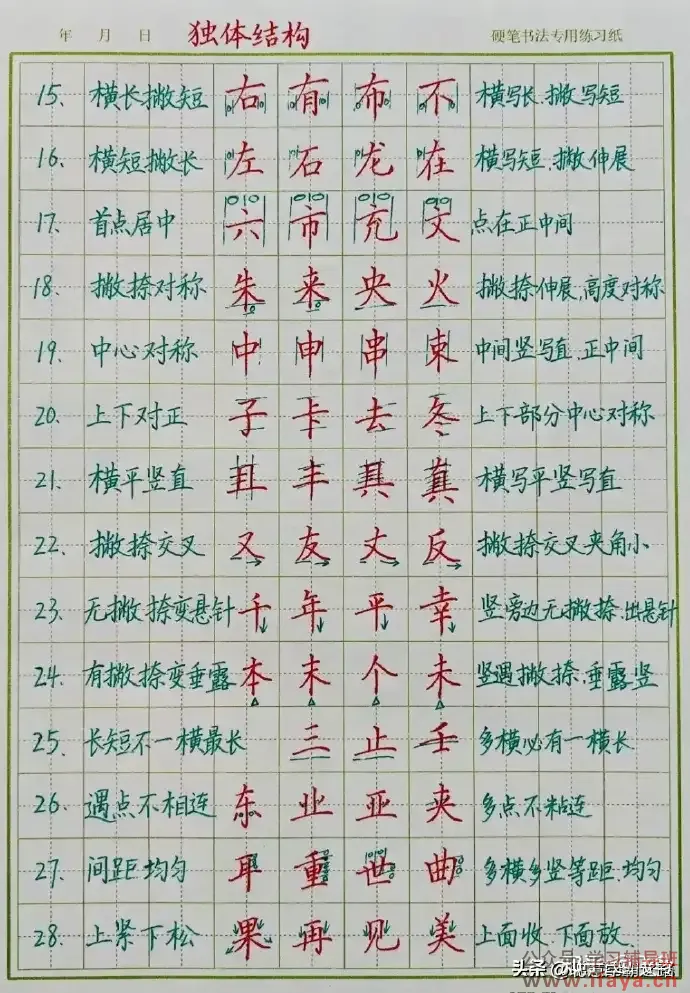 年 月 日 独体结构 硬笔书法专用练习纸
15、横长撇短 右 有 布 不 横写长、撇写短
16、横短撇长 左 石 龙 在 横写短、撇伸展
17、首点居中 六 市 充 文 点在正中间
18、撇捺对称 朱 来 央 火 撇捺伸展,高度对称
19、中心对称 中 申 串 束 中间竖写直,正中间
20、上下对正 子 卡 去 冬 上下部分中心对称
21、横平竖直 且 丰 具 真 横写平竖写直
22、撇捺交叉 又 友 丈 反 撇捺交叉夹角小
23、无撇捺变悬针 千 年 平 幸 竖旁边无撇捺、出悬针
24、有撇捺变垂露 本 末 个 未 竖遇撇捺、垂露竖
25、长短不一横最长 三 止 壬 多横必有一横长
26、遇点不相连 东 业 亚 夹 多点不粘连
27、间距均匀 耳 重 世 曲 多横多竖等距、均匀
28、上紧下松 果 再 见 美 上面收、下面放、
公众号:学习辅导班
www.naya.cn
头条